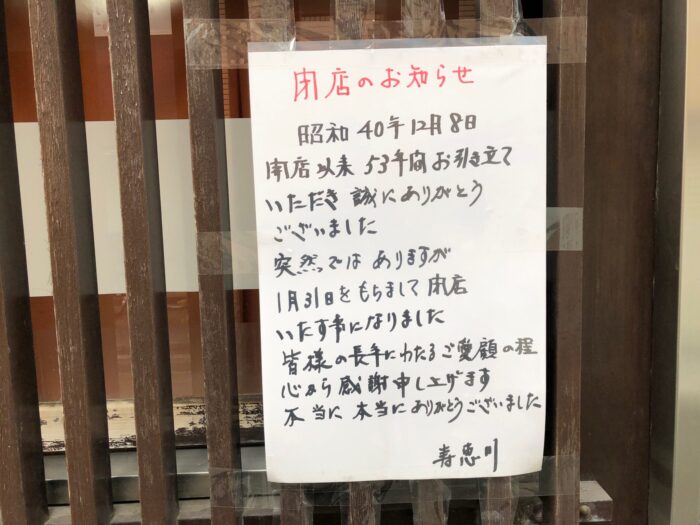 閉店のお知らせ
昭和40年12月8日
開店以来53年間お引き立て
いただき誠にありがとう
ございました
突然ではありますが
1月31日をもちまして閉店
いたす事になりました
皆様の長年にわたるご愛顧の程
心から感謝申し上げます
本当に本当にありがとうございました
寿恵川